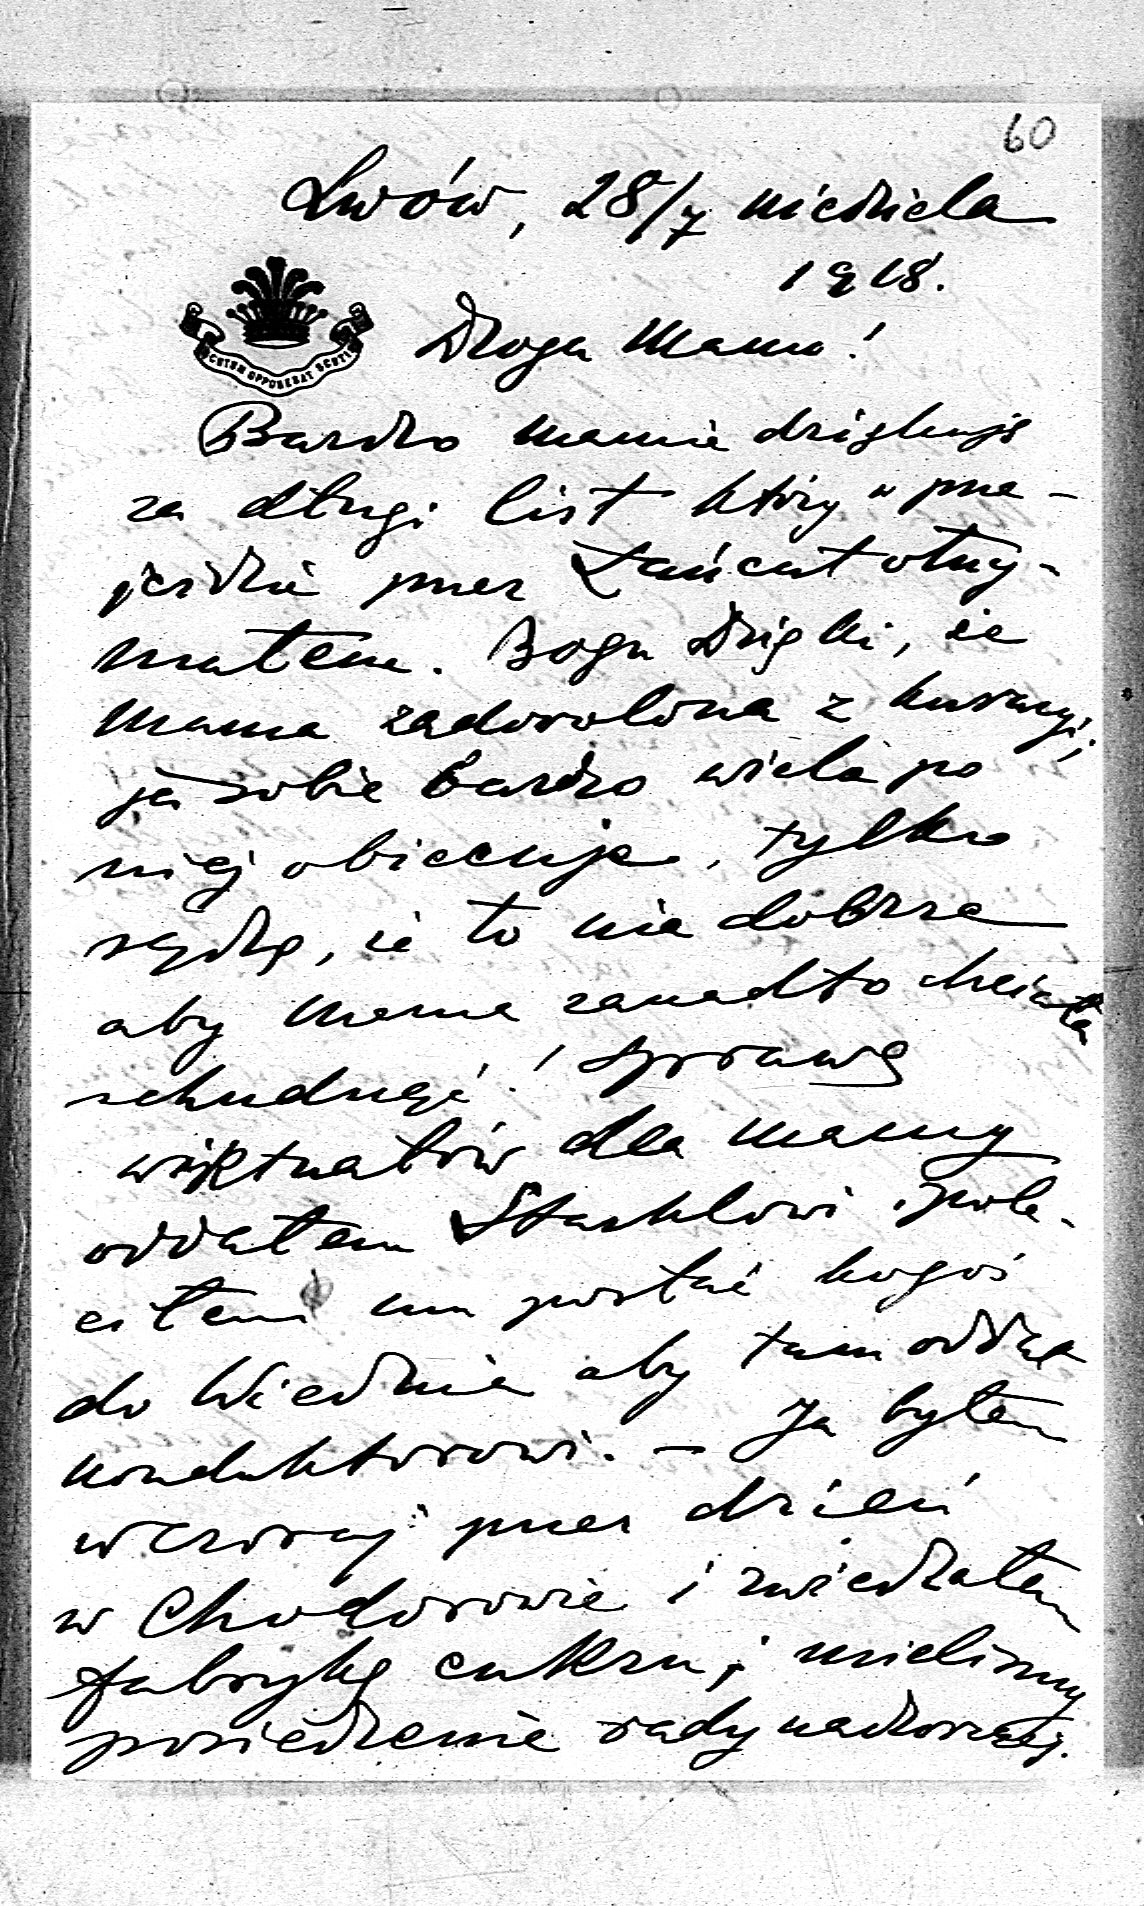 60
Lwów, 28/7 niedziela
1918.
SCUTUM OPPONEBAT SCUTIS
Droga Mamo!
Bardzo mamie dziękuję
za długi list który w prze-
jeździe przez Łańcut otrzy-
małem. Bogu Dzięki, że
Mama zadowolona z kuracyi;
ja sobie bardzo wiele po
niej obiecuję, tylko
sądzę, że to nie dobrze
aby Mama zanadto chciała
schudnąć! Sprawę
wiktuałów dla mamy
oddałem Stachlowi i pole-
ciłem mu posłać kogoś
do Wiednia aby tam oddał
konduktorowi. – Ja byłem
wczoraj przez dzień
w Chodorowie i zwiedzałem
fabrykę cukru; mieliśmy
posiedzenie rady nadzorczej.